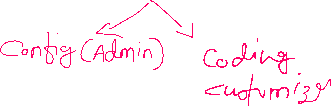 Config (Admin)
Coding
customizer